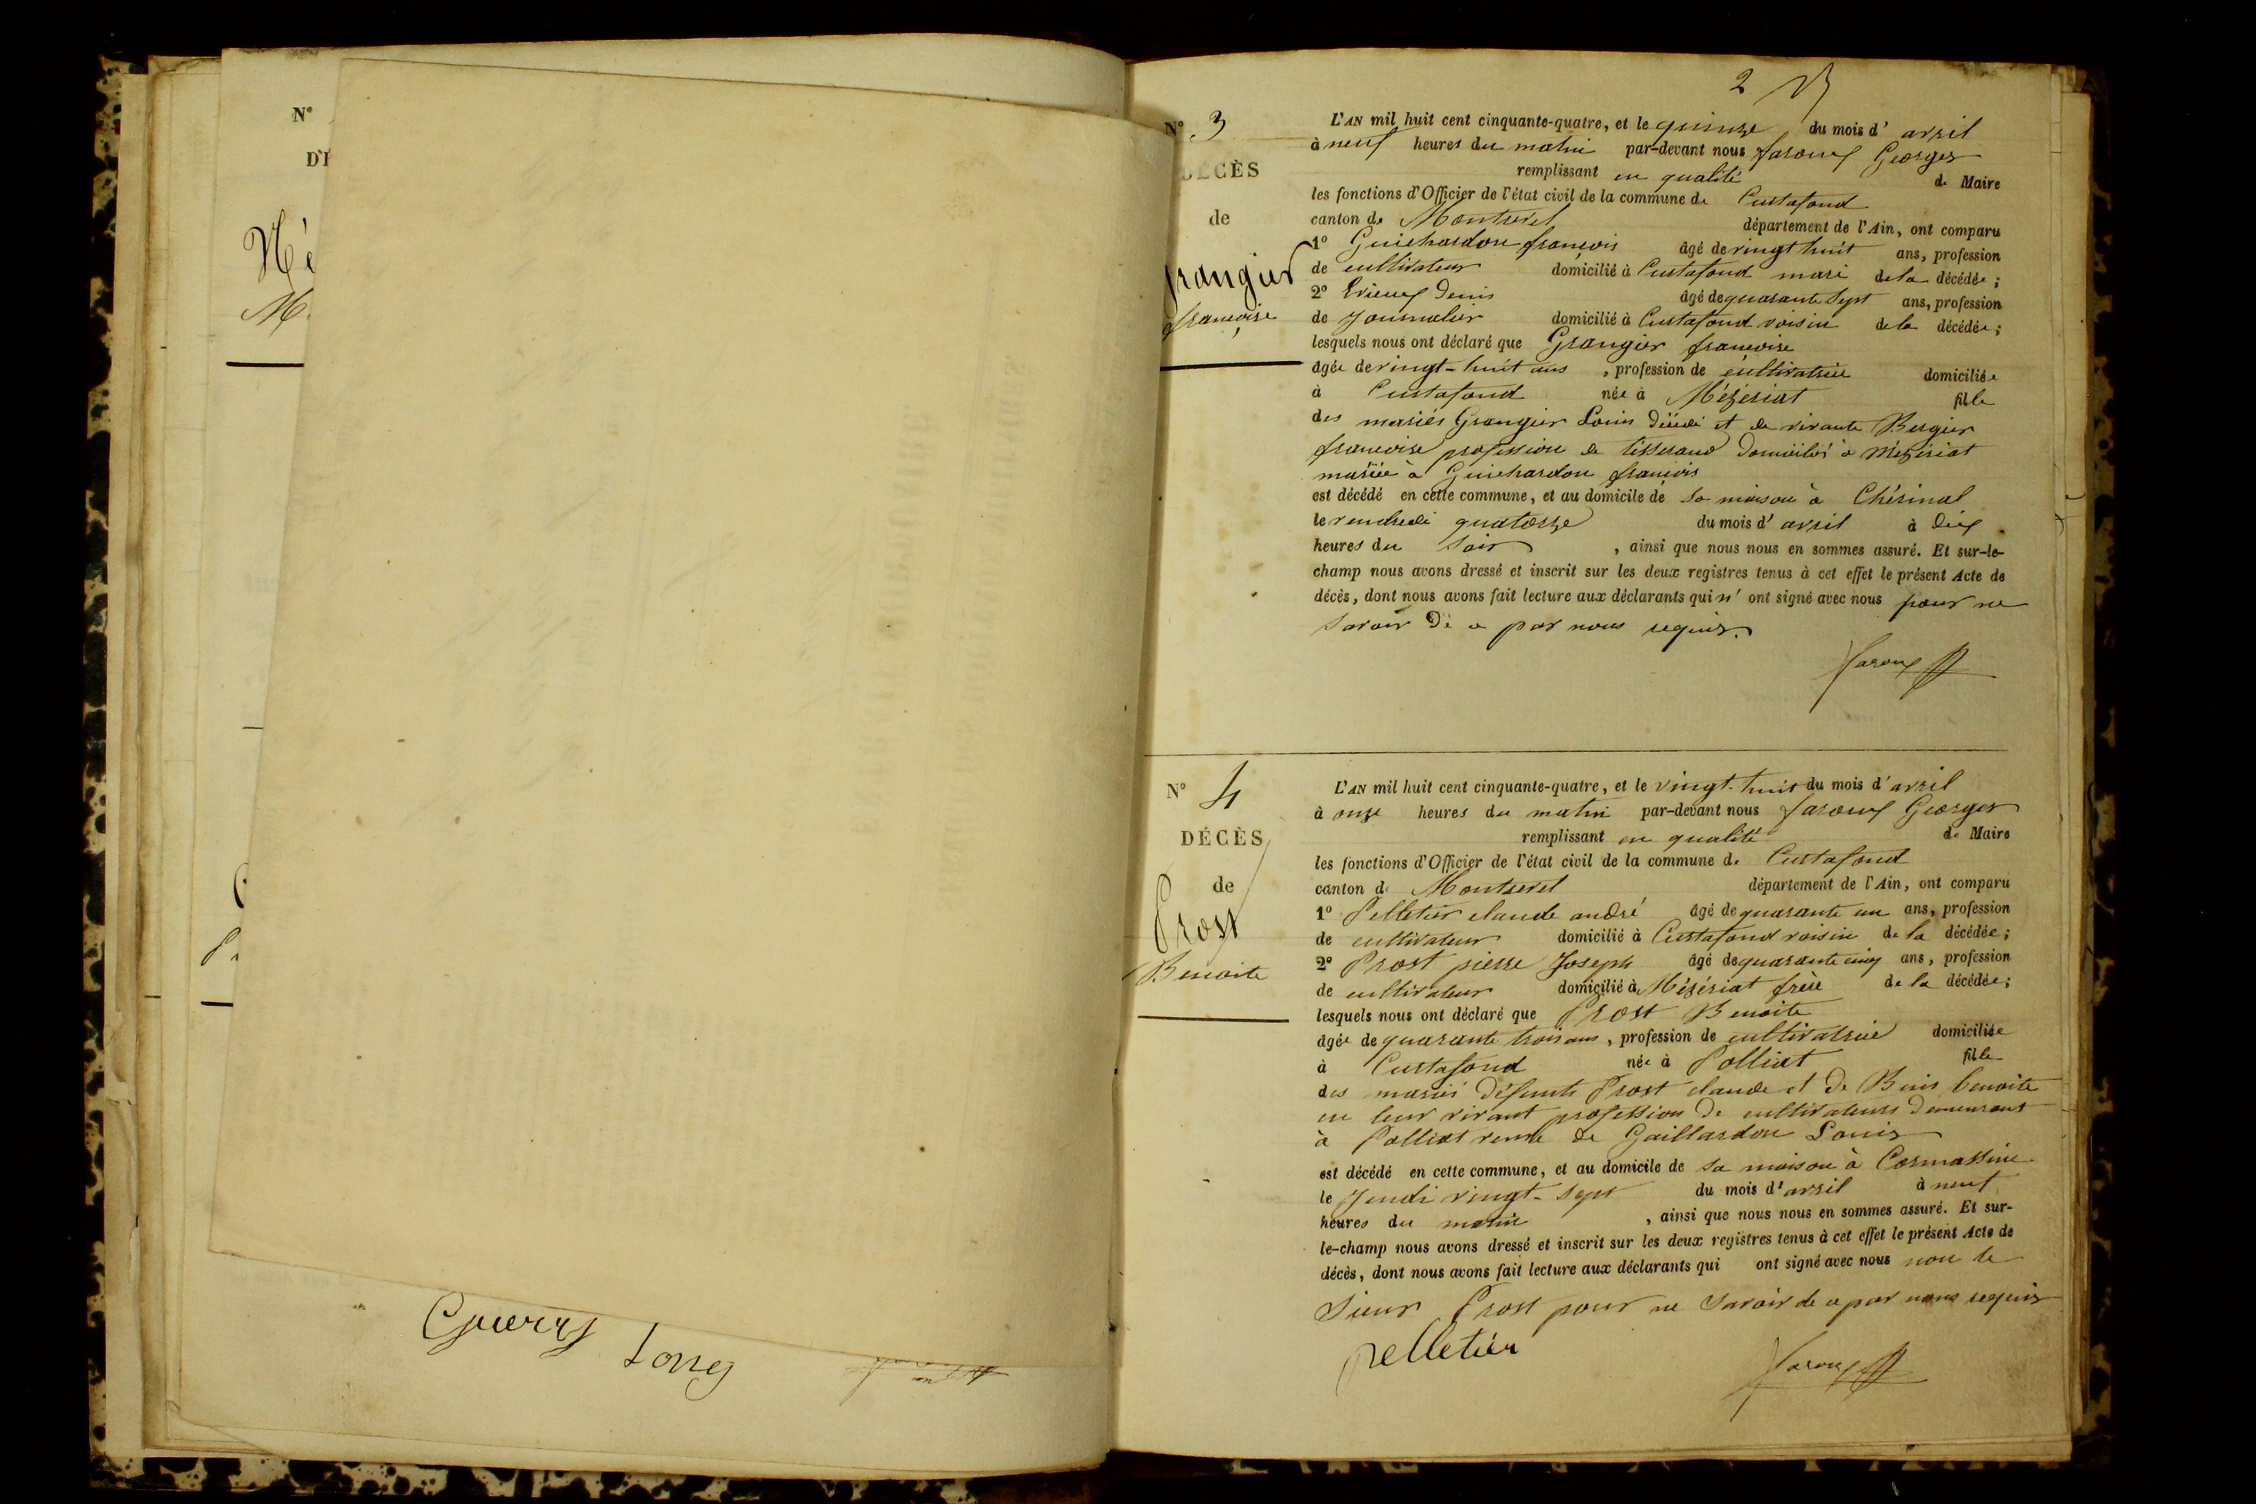 N°
DÉ
Mé
M.
Guerry Long
2
N° 3
DÉCÈS
de
Grangier
françoise
L'AN mil huit cent cinquante-quatre, et le quinze du mois d' avril
à neuf heures du matin par-devant nous faroux Georges
remplissant en qualité de Maire
les fonctions d'Officier de l'état civil de la commune de Curtafond
canton de Montrevel département de l'Ain, ont comparu
1° Guichardon françois âgé de vingt huit ans, profession
de cultivateur domicilié à Curtafond mari de la décédée;
2° Denis âgé de quarante sept ans, profession
de Journalier domicilié à Curtafond voisin de la décédée;
lesquels nous ont déclaré que Grangier françoise
âgée de vingt-huit ans, profession de cultivatrice domiciliée
à Curtafond née à Mézériat fille
des mariés Grangier Louis décédé et de vivante Bergier
francoise profession de tisserand domiciliés à mézériat
mariée à Guichardon françois
est décédé en cette commune, et au domicile de sa maison à Chérinal
le vendredi quatorze du mois d' avril à dix
heures du soir, ainsi que nous nous en sommes assuré. Et sur-le-
champ nous avons dressé et inscrit sur les deux registres tenus à cet effet le présent Acte de
décès, dont nous avons fait lecture aux déclarants qui n' ont signé avec nous pour ne
savoir de ce par nous requis.
faroux
N° 4
DÉCÈS
de
Prost
Benoite
L'AN mil huit cent cinquante-quatre, et le vingt-huit du mois d' avril
à onze heures du matin par-devant nous faroux Georges
remplissant en qualité de Maire
les fonctions d'Officier de l'état civil de la commune de Curtafond
canton de Montrevel département de l'Ain, ont comparu
1° Pelletier claude andré âgé de quarante un ans, profession
de cultivateur domicilié à Curtafond voisin de la décédée;
2° Prost pierre Joseph âgé de quarante cinq ans, profession
de cultivateur domicilié à Mézériat frère de la décédée;
lesquels nous ont déclaré que Prost Benoite
âgée de quarante trois ans, profession de cultivatrice domiciliée
à Curtafond née à Polliat fille
des mariés défunts Prost claude et de benoite
en leur vivant profession de cultivateurs demeurant
à Polliat veuve de Gaillardon Louis
est décédé en cette commune, et au domicile de sa maison à Cormassine
le Jeudi vingt-sept du mois d' avril à neuf
heures du matin, ainsi que nous nous en sommes assuré. Et sur-
le-champ nous avons dressé et inscrit sur les deux registres tenus à cet effet le présent Acte de
décès, dont nous avons fait lecture aux déclarants qui ont signé avec nous non le
Sieur Prost pour ne savoir de ce par nous requis
pelletier faroux